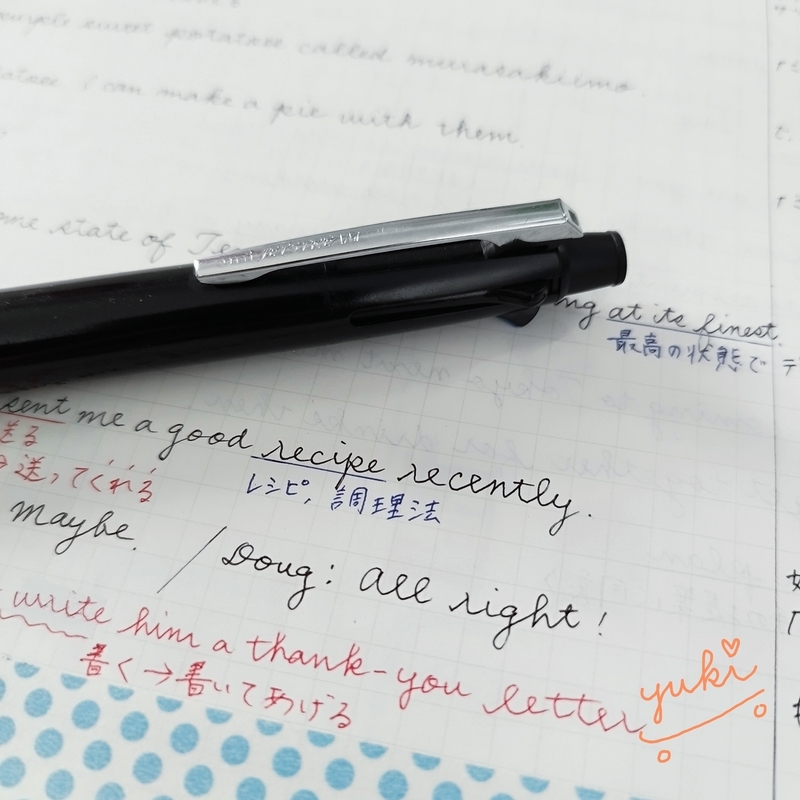 sweet potatoes called murasakiimo.
I can make a pie with them.
state of
at its finest.
最高の状態で
sent me a good recipe recently.
送る レシピ, 調理法
送ってくれる
Maybe. / Doug: All right!
write him a thank-you letter
書く→書いてあげる
yuki